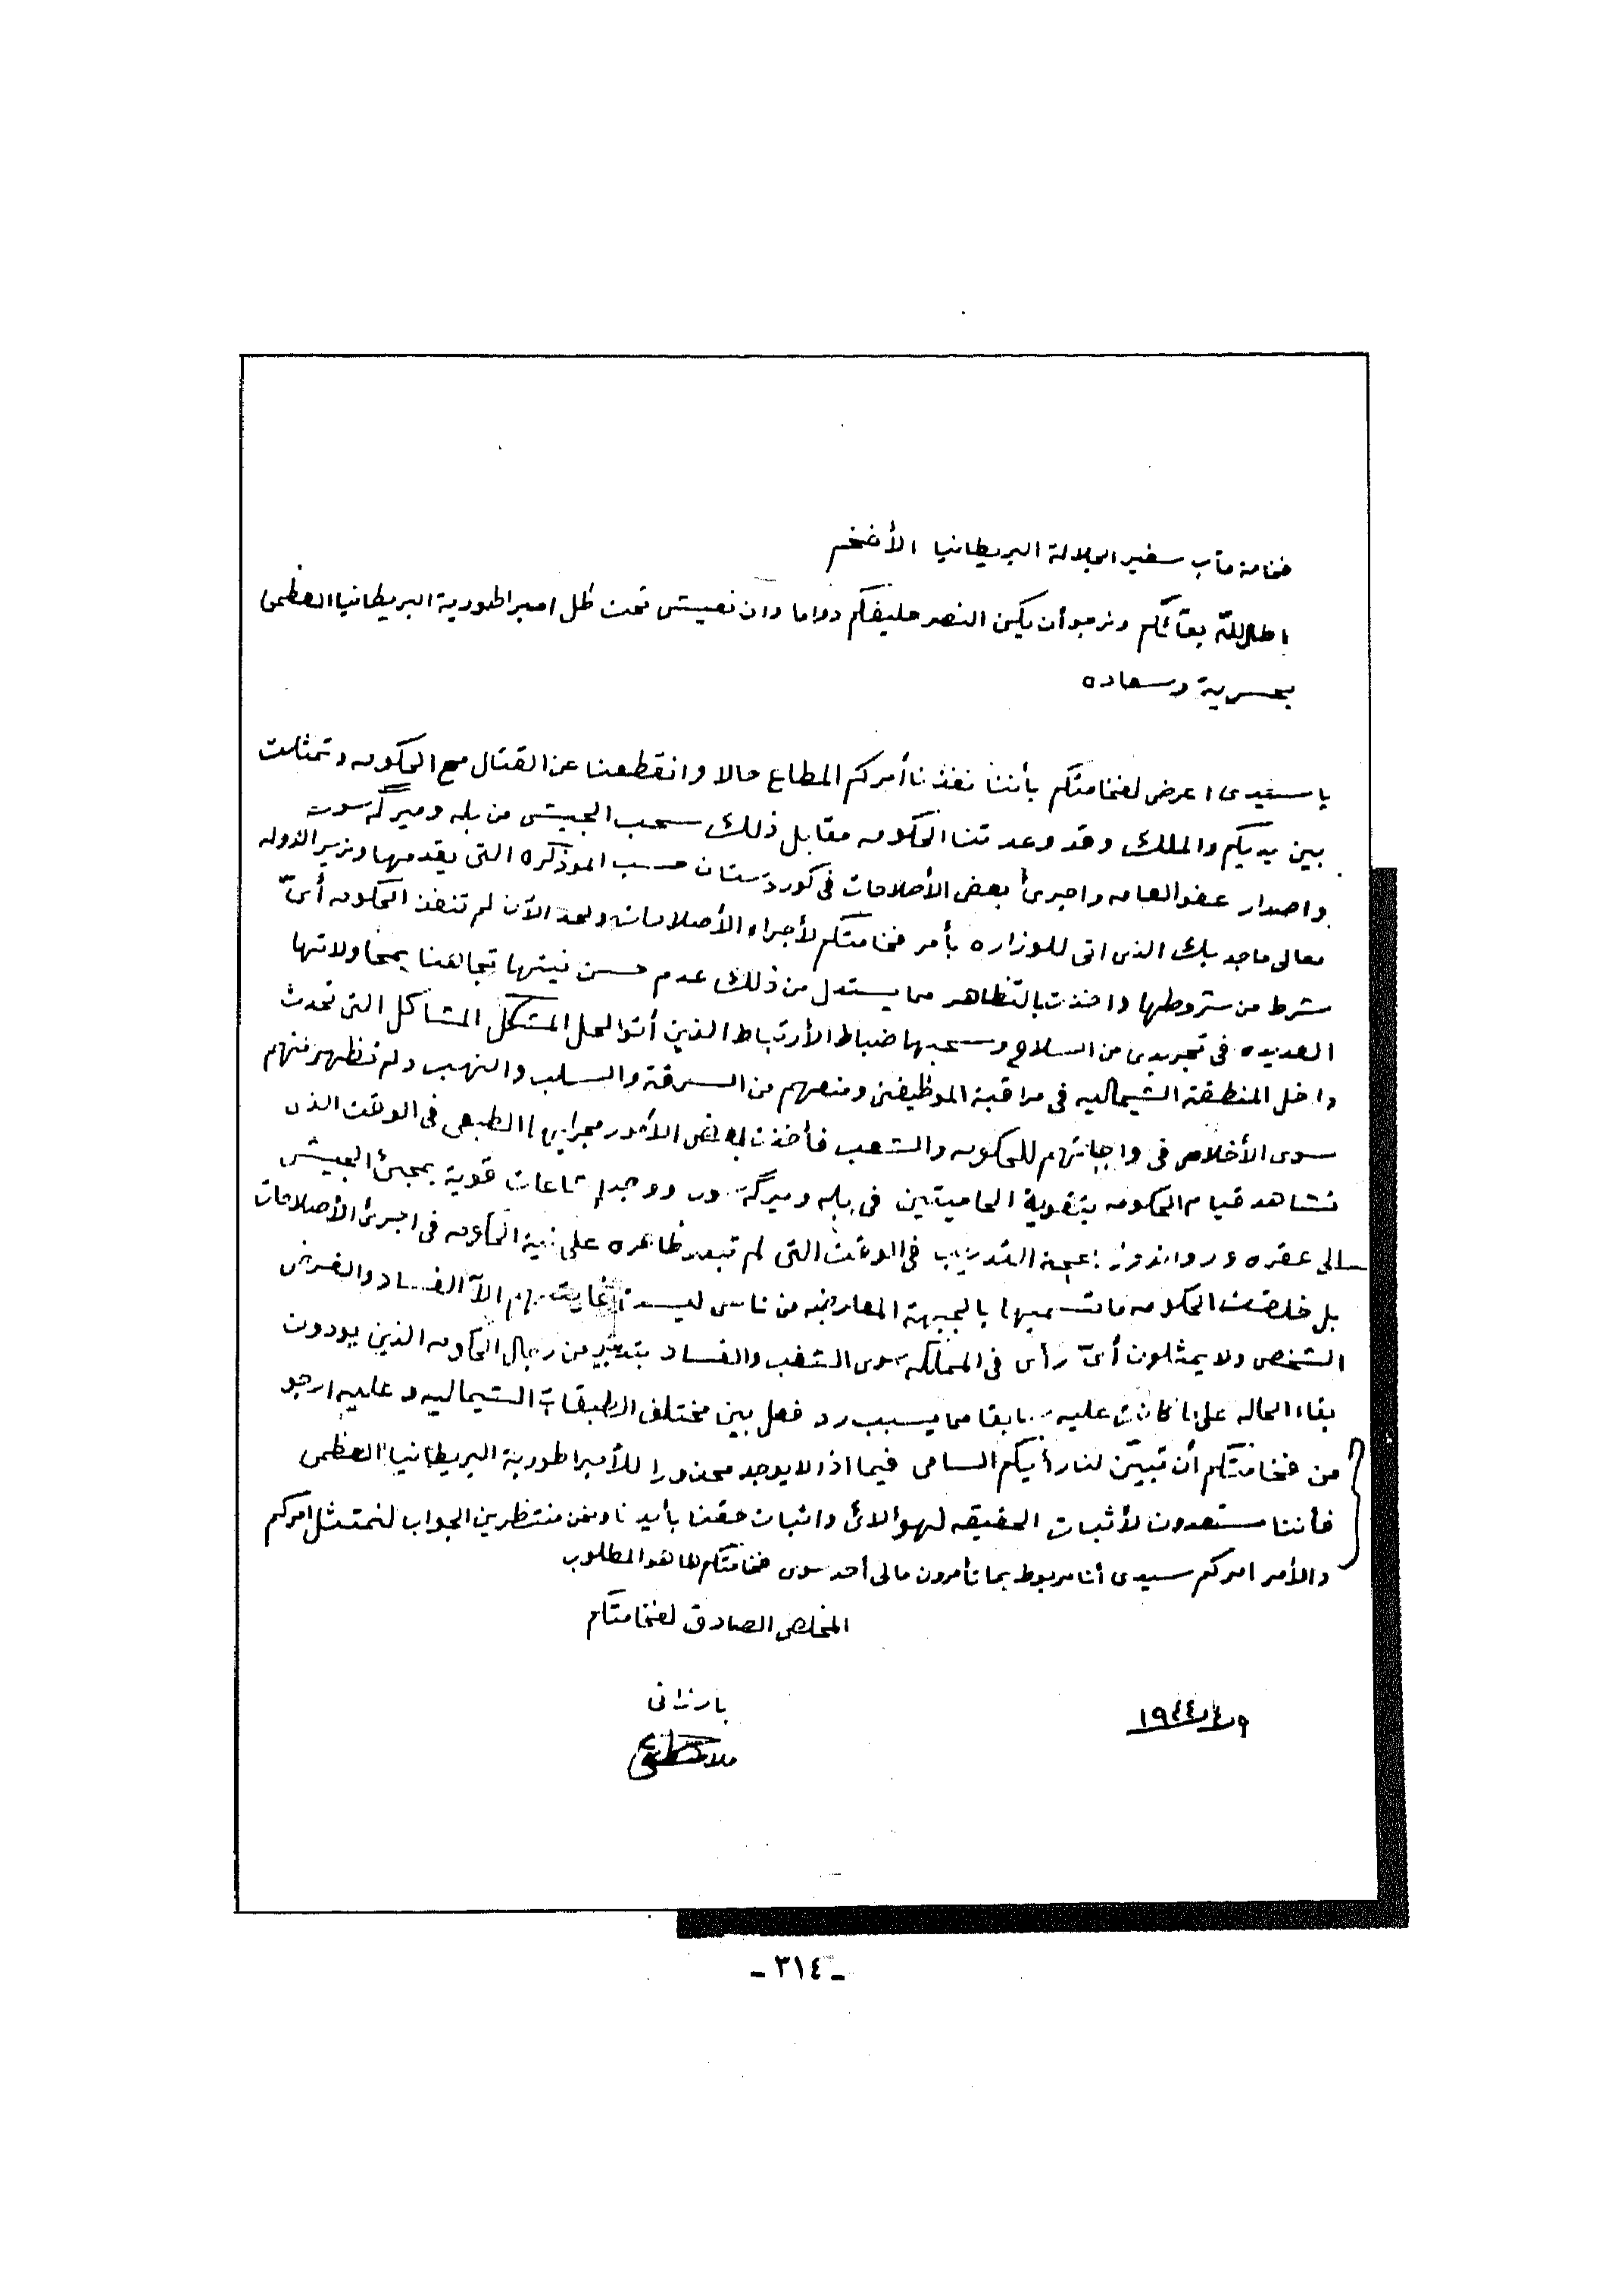 فخامة مآب سفير الجلالة البريطانيا الأفخم
اطال الله بقائكم ونرجو أن يكن النصر حليفكم دواما وان نعيش تحت ظل امبراطورية البريطانيا العظمى
بحرية وسعاده
يا سيدى اعرض لفخامتكم بأننا نفذنا أمركم المطاع حالا وانقطعنا عن القتال مع الحكومه وتمثلت
بين يديكم والملك وقد وعدتنا الحكومه مقابل ذلك سحب الجيش من بله وميرگه سور
واصدار عفو العامه واجرئ بعض الأصلاحات فى كوردستان حسب الموذكره التى يقدمها وزير الدوله
معالى ماجد بك الذى اتى للوزاره بأمر فخامتكم لأجراء الأصلاحات ولحد الآن لم تنفذ الحكومه أىّ
شرط من شروطها واخذت بالتظاهر مما يستدل من ذلك عدم حسن نيتها تجاهنا بمحاولاتها
العديده فى تجريدى من السلاح وسحبها ضباط الأرتباط الذين أتوا لحل المشكل المشاكل التى تحدث
داخل المنطقة الشيماليه فى مراقبة الموظيفين ومنعهم من السرقة والسلب والنهب ولم تظهر منهم
سوى الأخلاص فى واجباتهم للحكومه والشعب فأخذت بعض الأمور مجرايها الطبعى فى الوقت الذى
نشاهد قيام الحكومه بتقوية الحاميتين فى بله وميرگه سور ووجود اشاعات قوية بمجئ الجيش
الى عقره ورواندوز بحجة التدريب فى الوقت التى لم تبدر ظاهره على نية الحكومه فى اجرئ الأصلاحات
بل خلقت الحكومه ما تسميها بالجبهة المعارضه من ناس ليست غايتهم الآ الفساد والغرض
الشخصى ولا يمثلون أىّ رأى فى المملكه سوى الشغب والفساد بتدبير من رجال الحكومه الذين يودون
بقاء الحاله على ما كانت عليه سابقا مما يسبب رد فعل بين مختلف الطبقات الشيماليه وعليه ارجو
من فخامتكم أن تبيّن لنا رأيكم السامى فيما اذا لا يوجد محذورا للأمبراطورية البريطانيا العظمى
فأننا مستعدون لأثبات الحقيقه لهوالائ واثبات حقنا بأيدنا ونحن منتظرين الجواب لنمتثل امركم
والأمر امركم سيدى أنا مربوط بما تأمرون مالى أحد سوى فخامتكم هذا هو المطلوب
المخلص الصادق لفخامتكم
بارزانى
ملا مصطفى
١٩٤٤
ـ ٣١٤ ـ